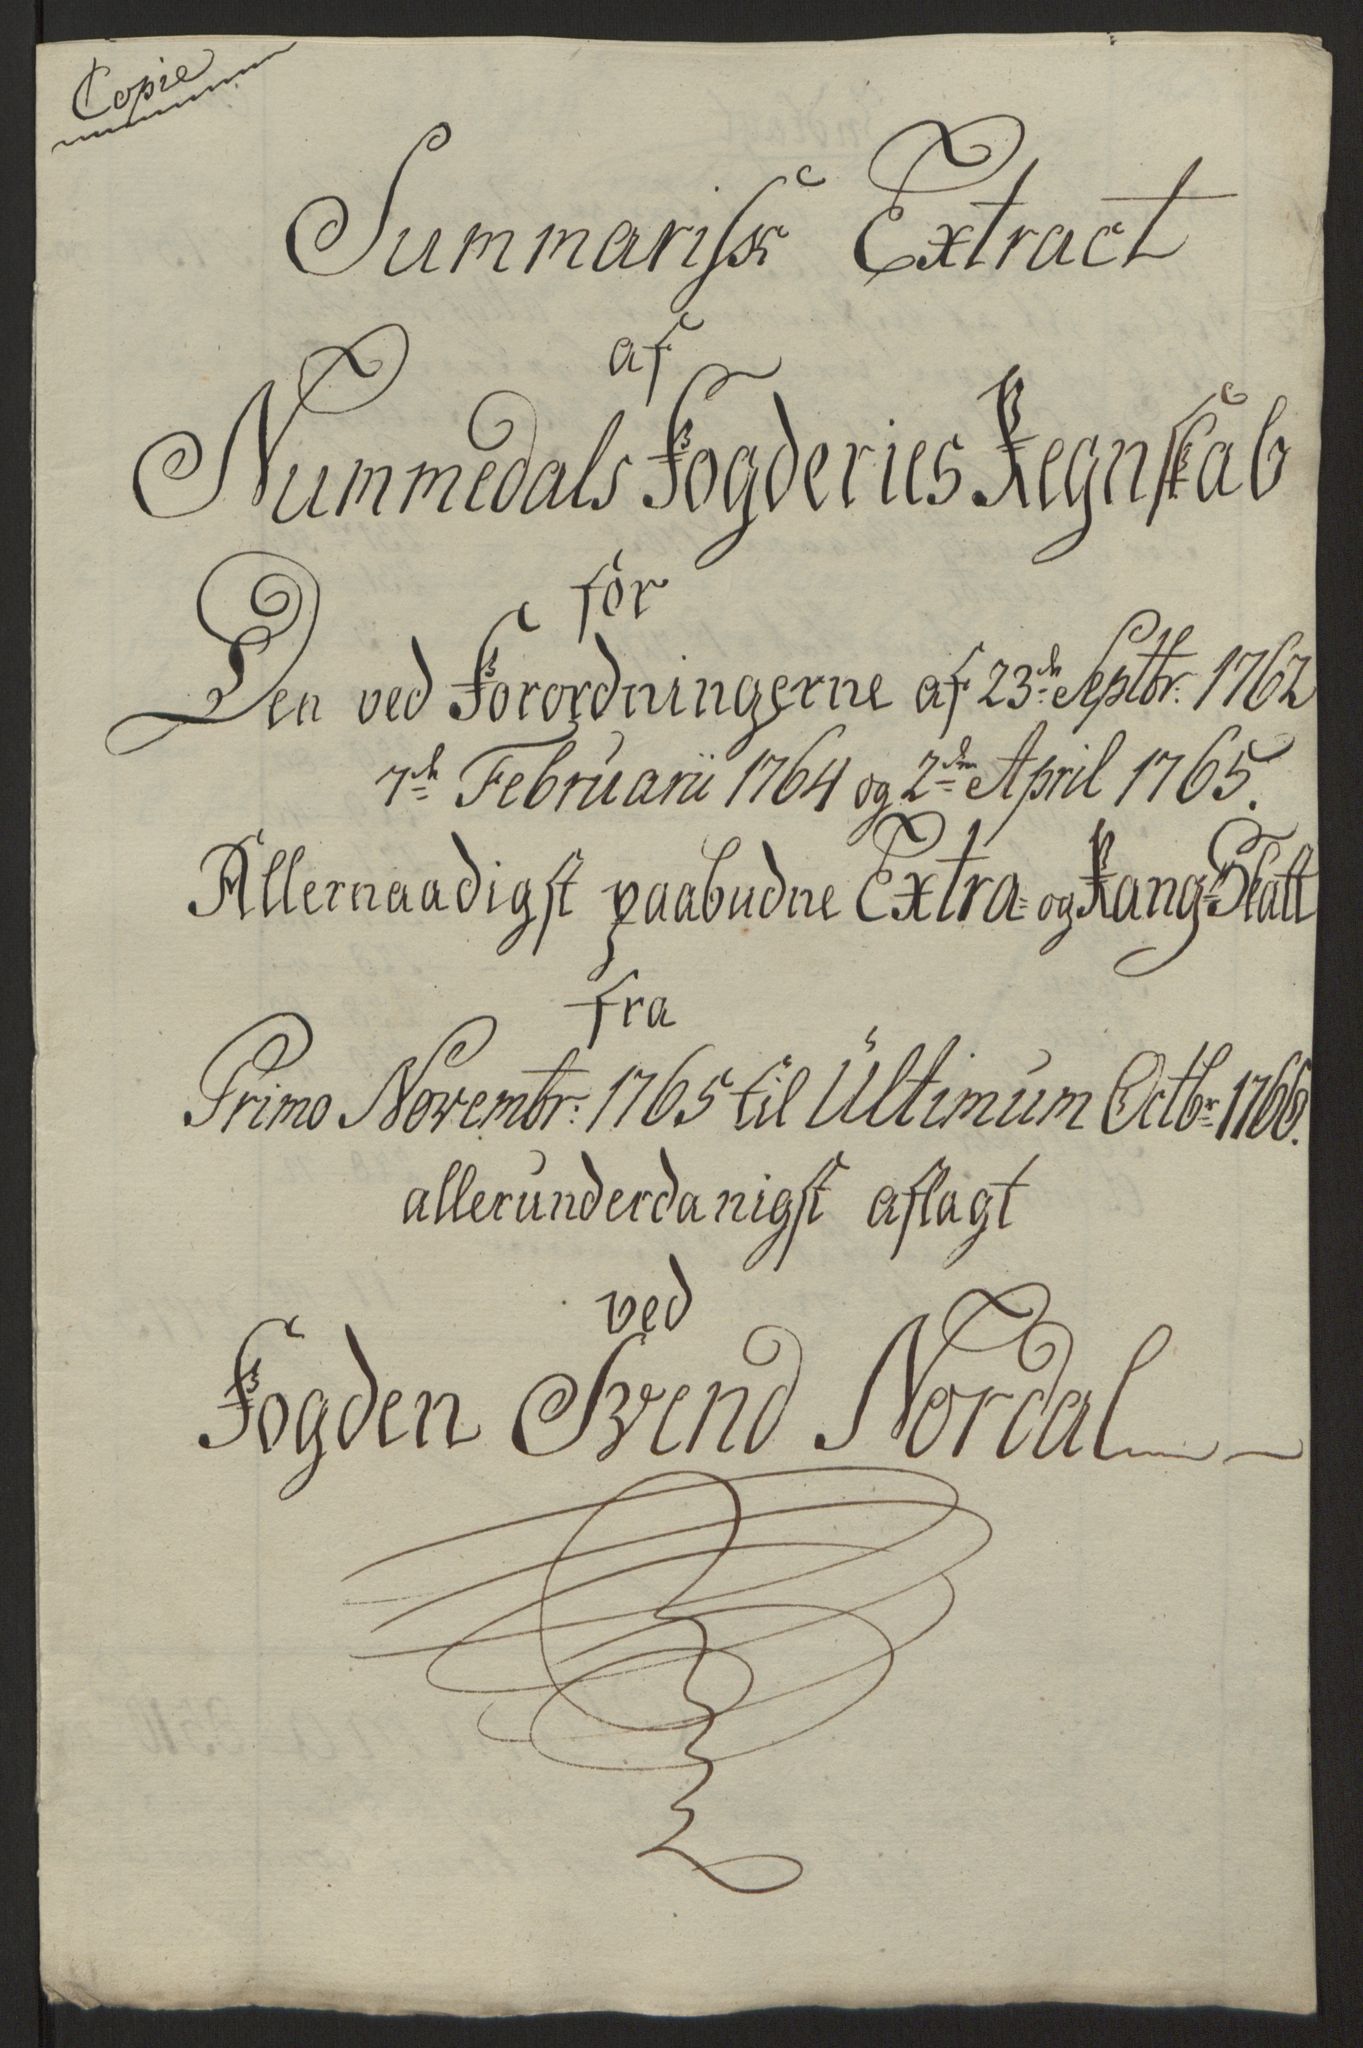 Copie
Summarisk Extract
af
Nummedals Fogderies Regnskab
for
Den ved Forordningerne af 23de Septbr: 1762
7de Februarii 1764 og 2den April 1765.
Allernaadigst paabudne Extra- og Rang-Skatt
fra
Primo Novembr: 1765 til Ultimum Octbr 1766.
allerunderdanigst aflagt
ved
Fogden Svend Nordal